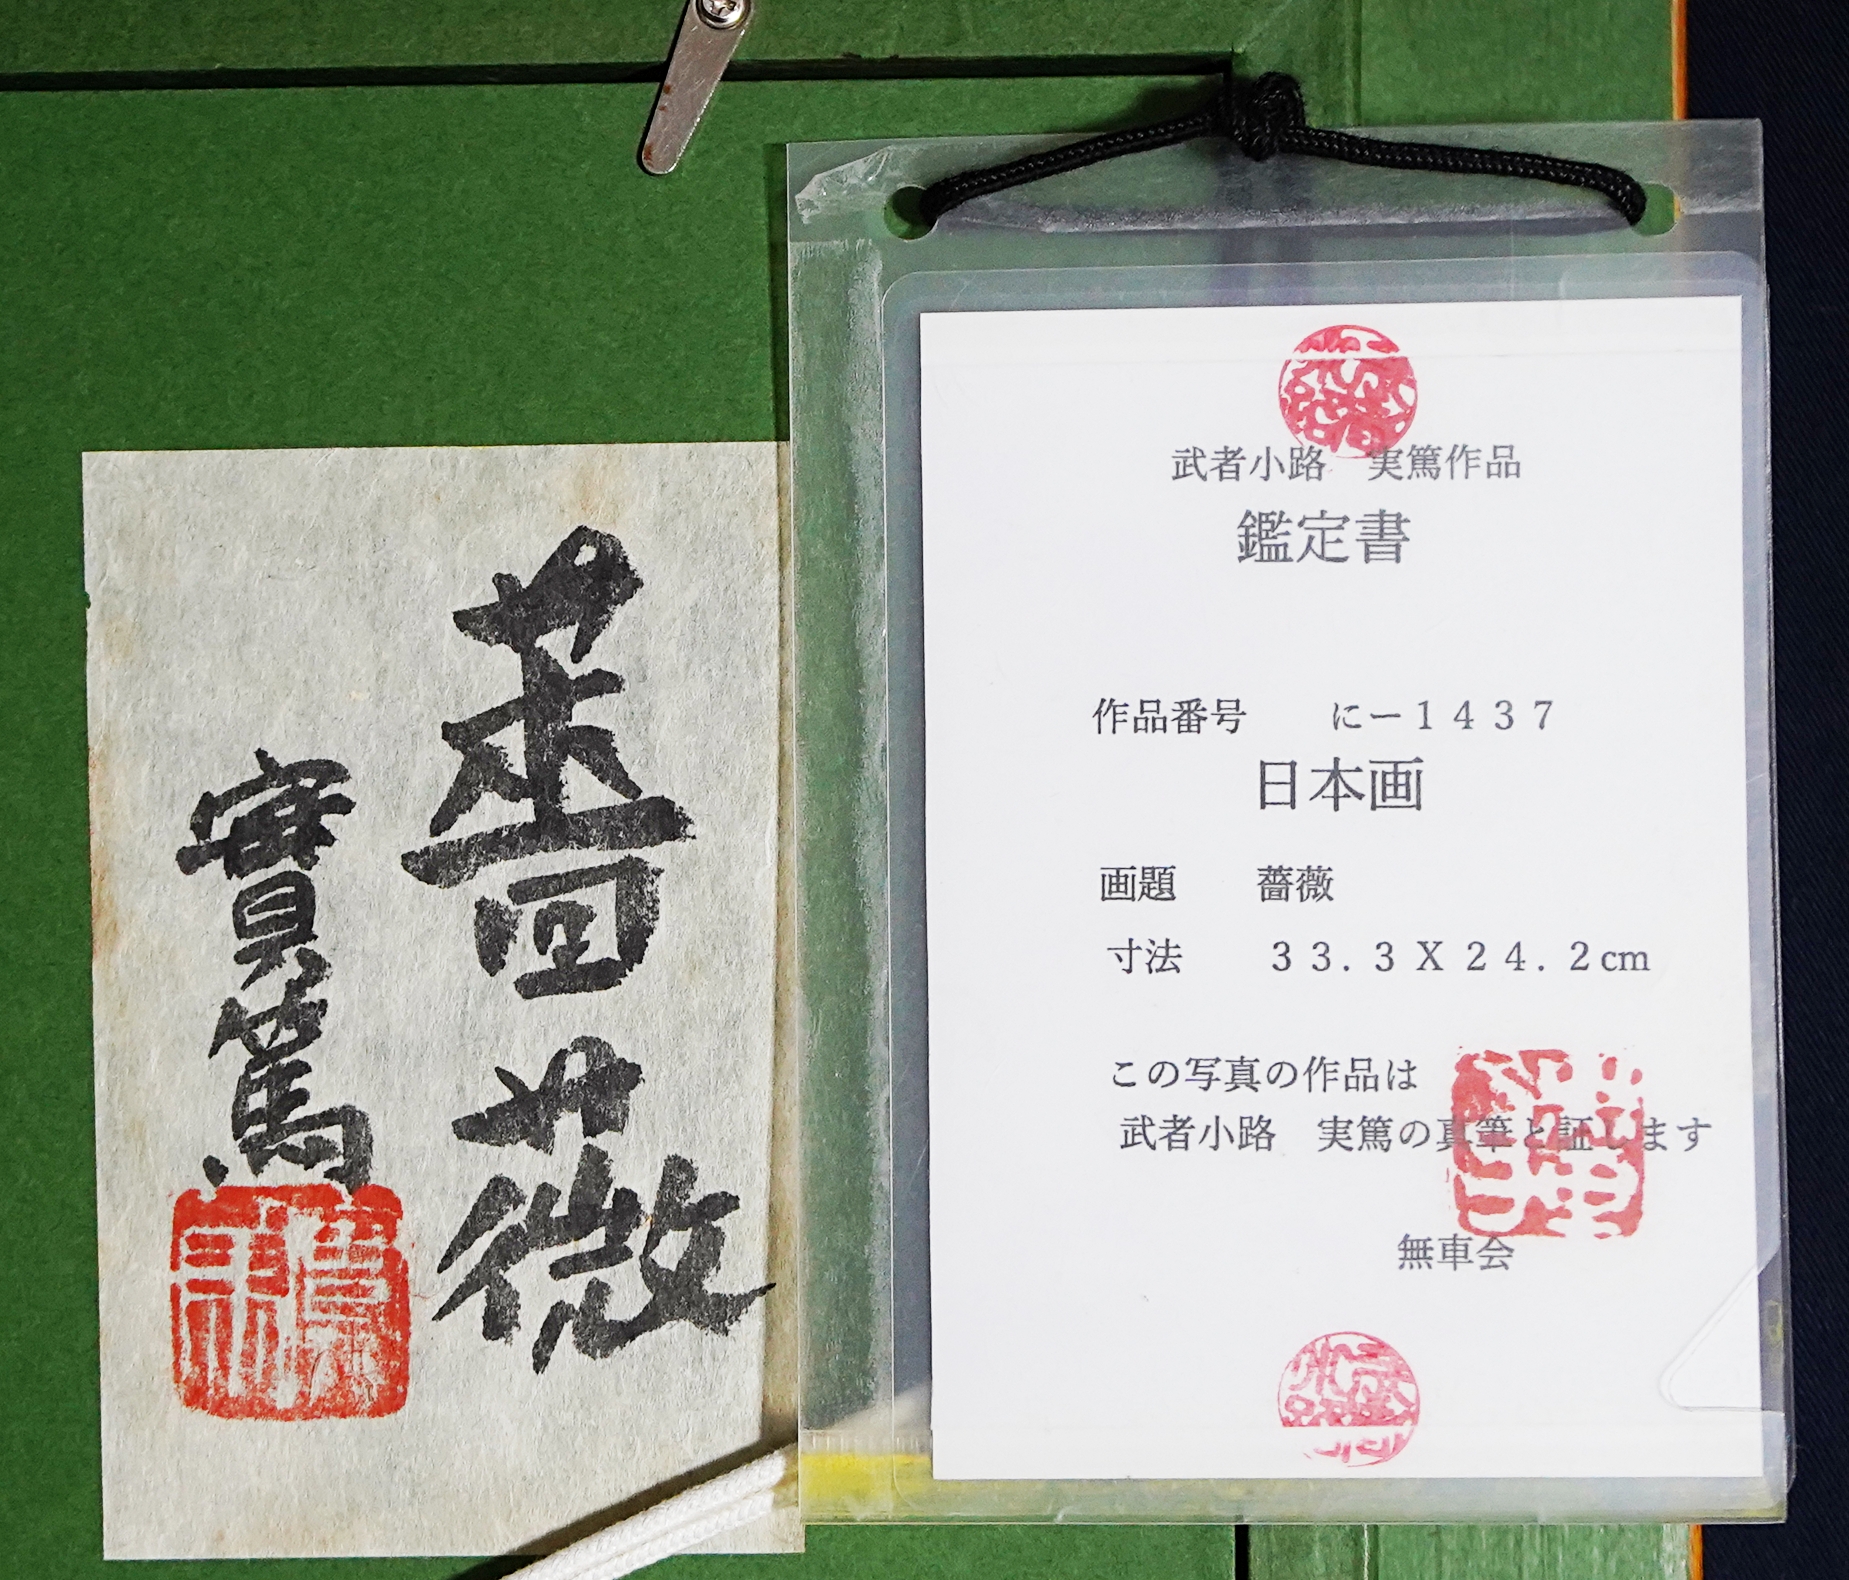 薔薇
實篤
武者小路　実篤作品
鑑定書
作品番号　　にー１４３７
日本画
画題　　薔薇
寸法　　３３.３Ｘ２４.２cm
この写真の作品は
武者小路　実篤の真筆と証します
無車会